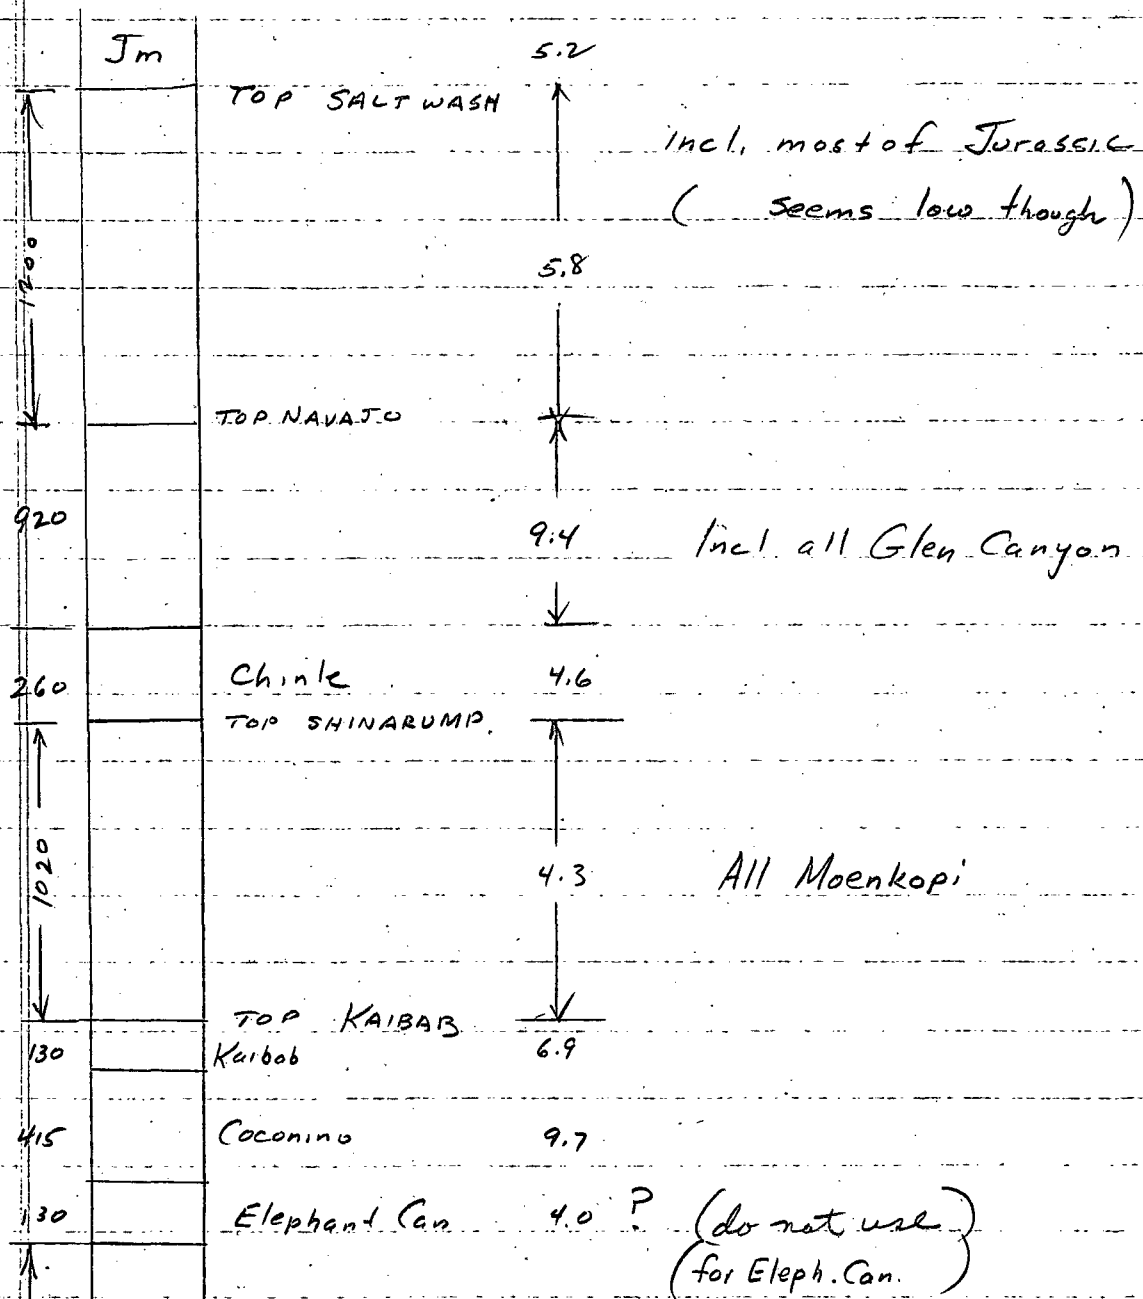 Jm 5.2
TOP SALT WASH
incl. most of Jurassic
( seems low though )
1200
5.8
TOP NAVAJO
920 9.4 Incl all Glen Canyon
260 Chinle 4.6
TOP SHINARUMP.
1020
4.3 All Moenkopi
TOP KAIBAB
130 Kaibob 6.9
415 Coconino 9.7
130 Elephant Can 4.0 ? (do not use)
(for Eleph. Can. )